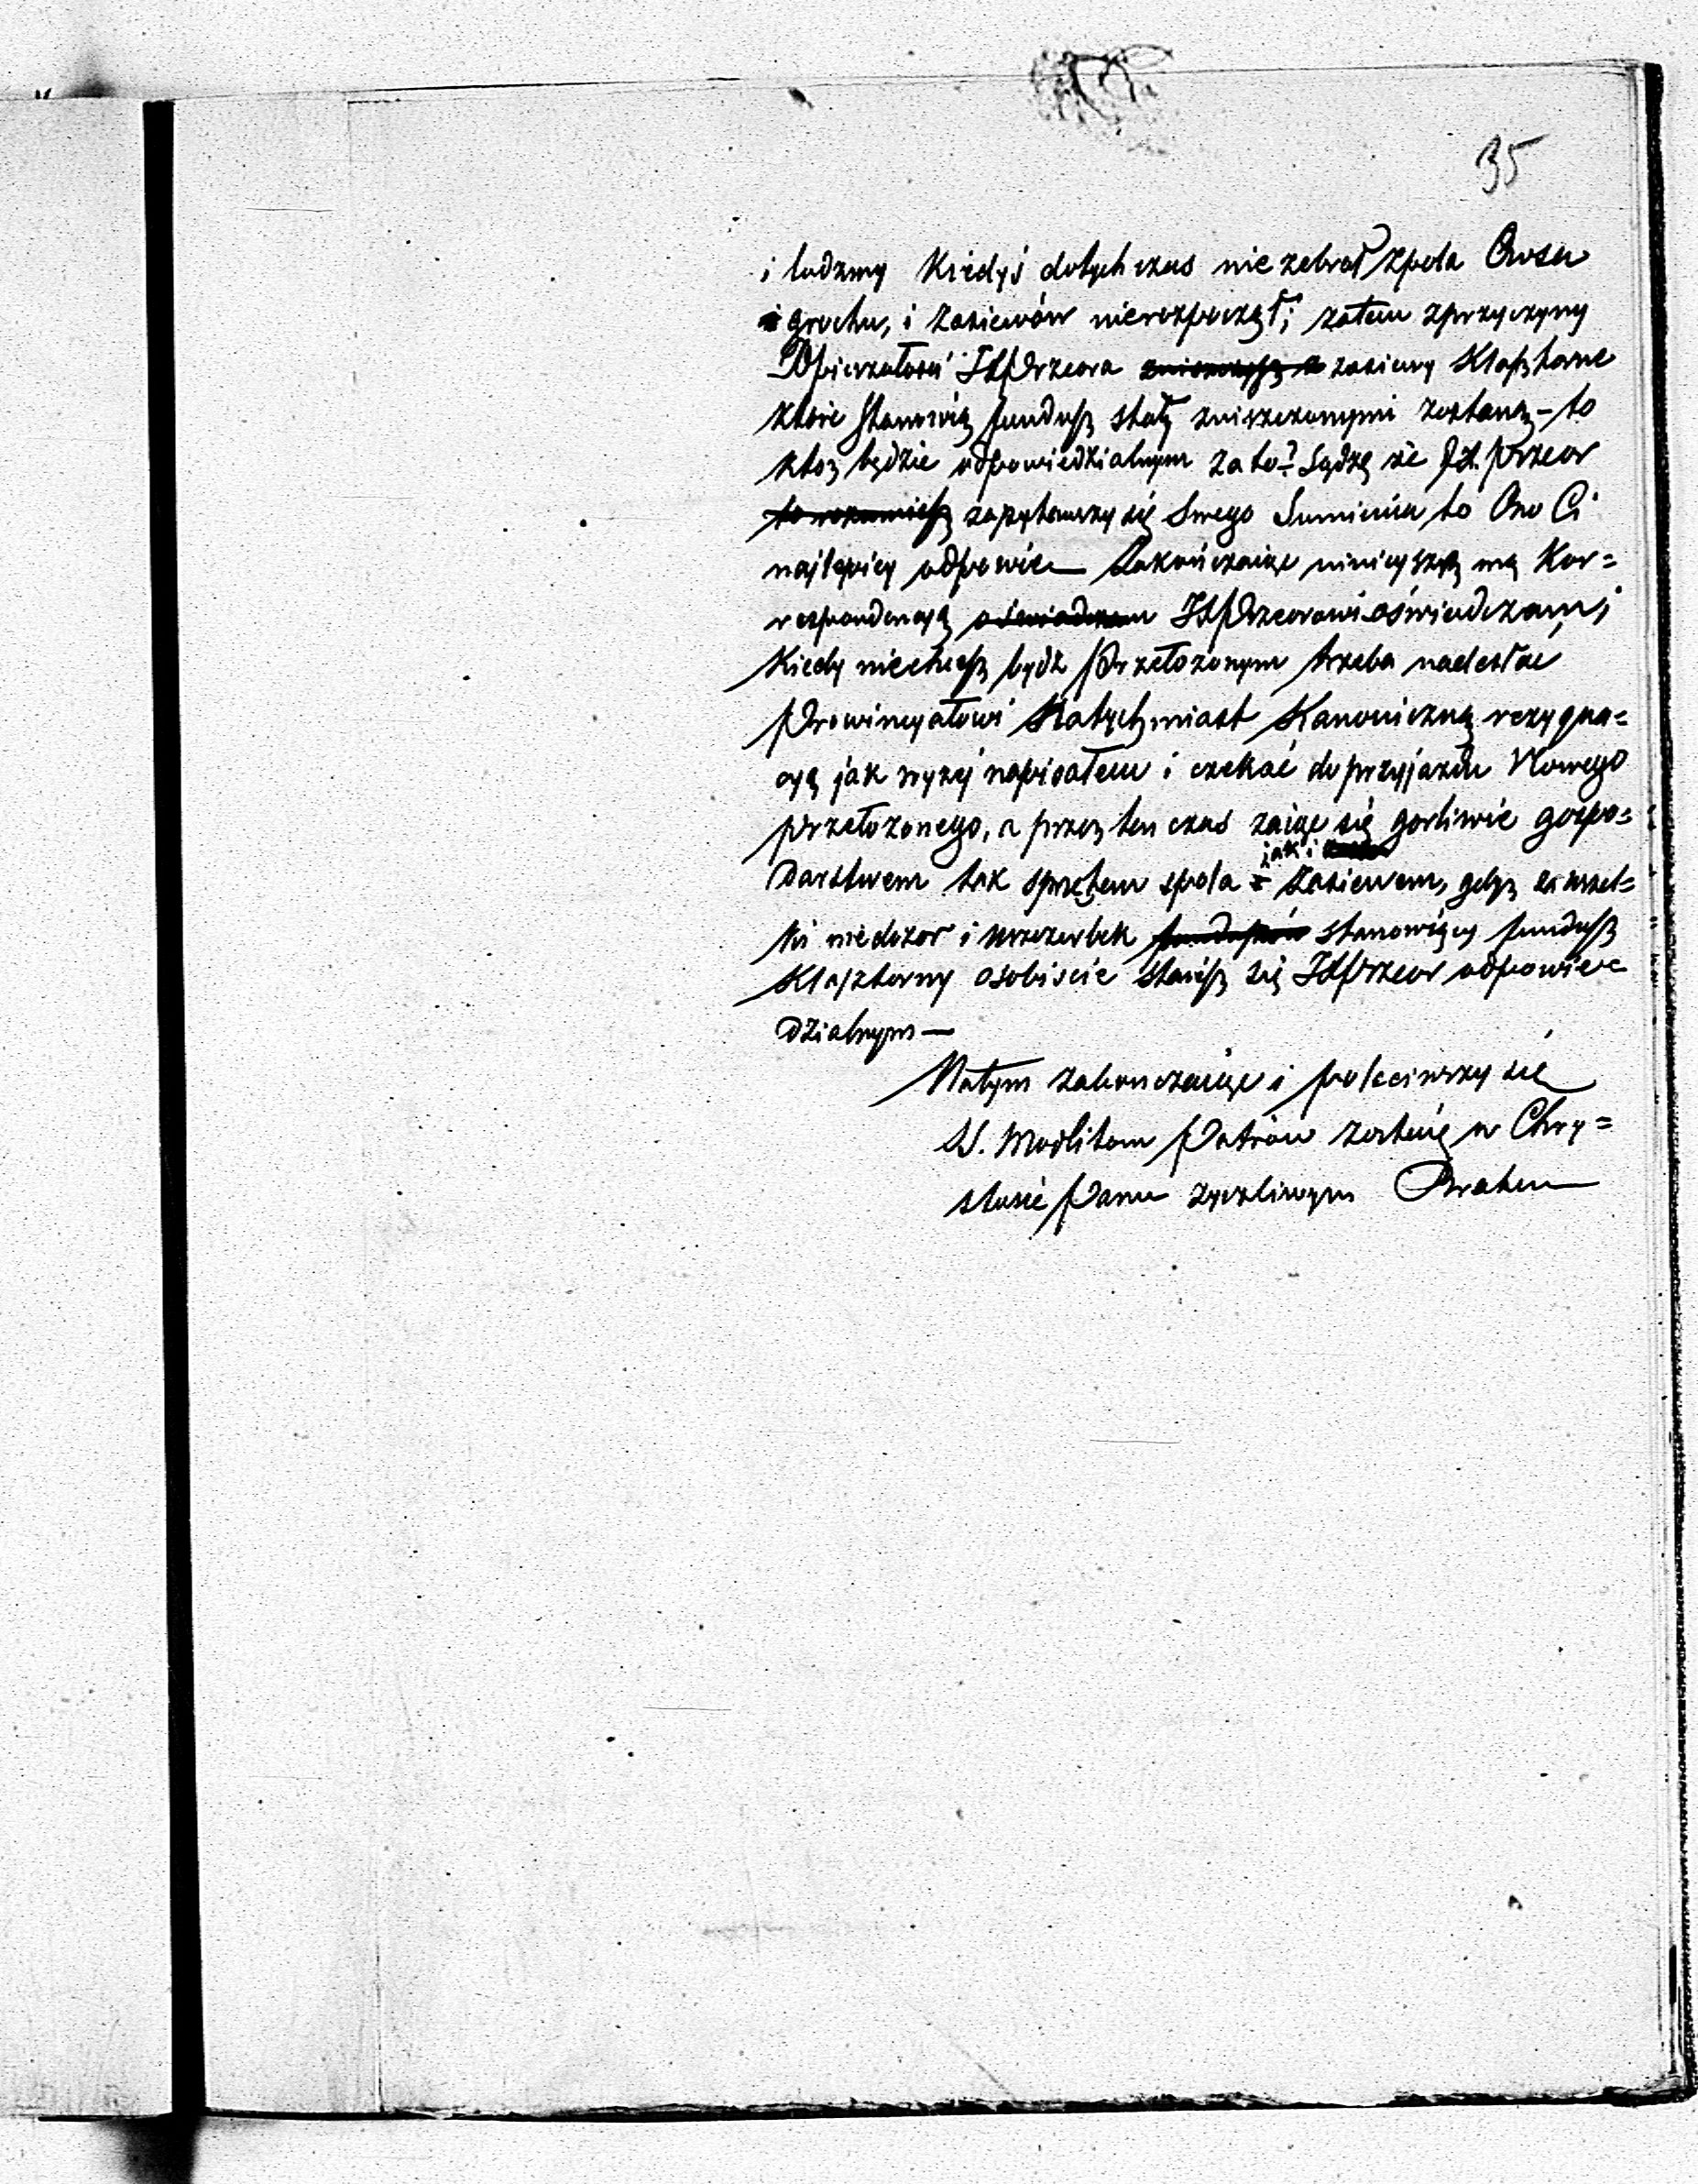 35
i ludzmy Kiedyś dotychczas nie zebrał zpola Owsa
i grochu, i Zasiewów nierozpoczął; zatem zprzyczyny
Opieszałości JXPrzeora zasiewy Klasztorne
które Stanowią fundusz stały zniszczonymi zostaną – to
ktoż będzie odpowiedzialnym za to? Sądzę że JX. Przeor
zapytawszy się Swego Sumienia to Ono Ci
najlepiej odpowie — Zakończając niniejszą mą Kor=
respondencyą oświadczam JXPrzeorowi oświadczam;
Kiedy niechcesz bydź Przełożonym trzeba nadesłać
Prowincyałowi Natychmiast Kanoniczną rezygna=
cyą jak wyżej napisałem i czekać do przyjazdu Nowego
Przełożonego, a przez ten czas zająć się gorliwie gospo=
jak i
darstwem tak sprzętem zpola i Zasiewem, gdyż za wszel=
ki niedozór i uszczerbek funduszów stanowiący fundusz
Klasztorny osobiście staiesz się JXPrzeor odpowie=
dzialnym —
Natym zakonczając i poleciwszy się
SS. Modlitom Patrów zostaię w Chry=
stusie Panu życzliwym Bratem